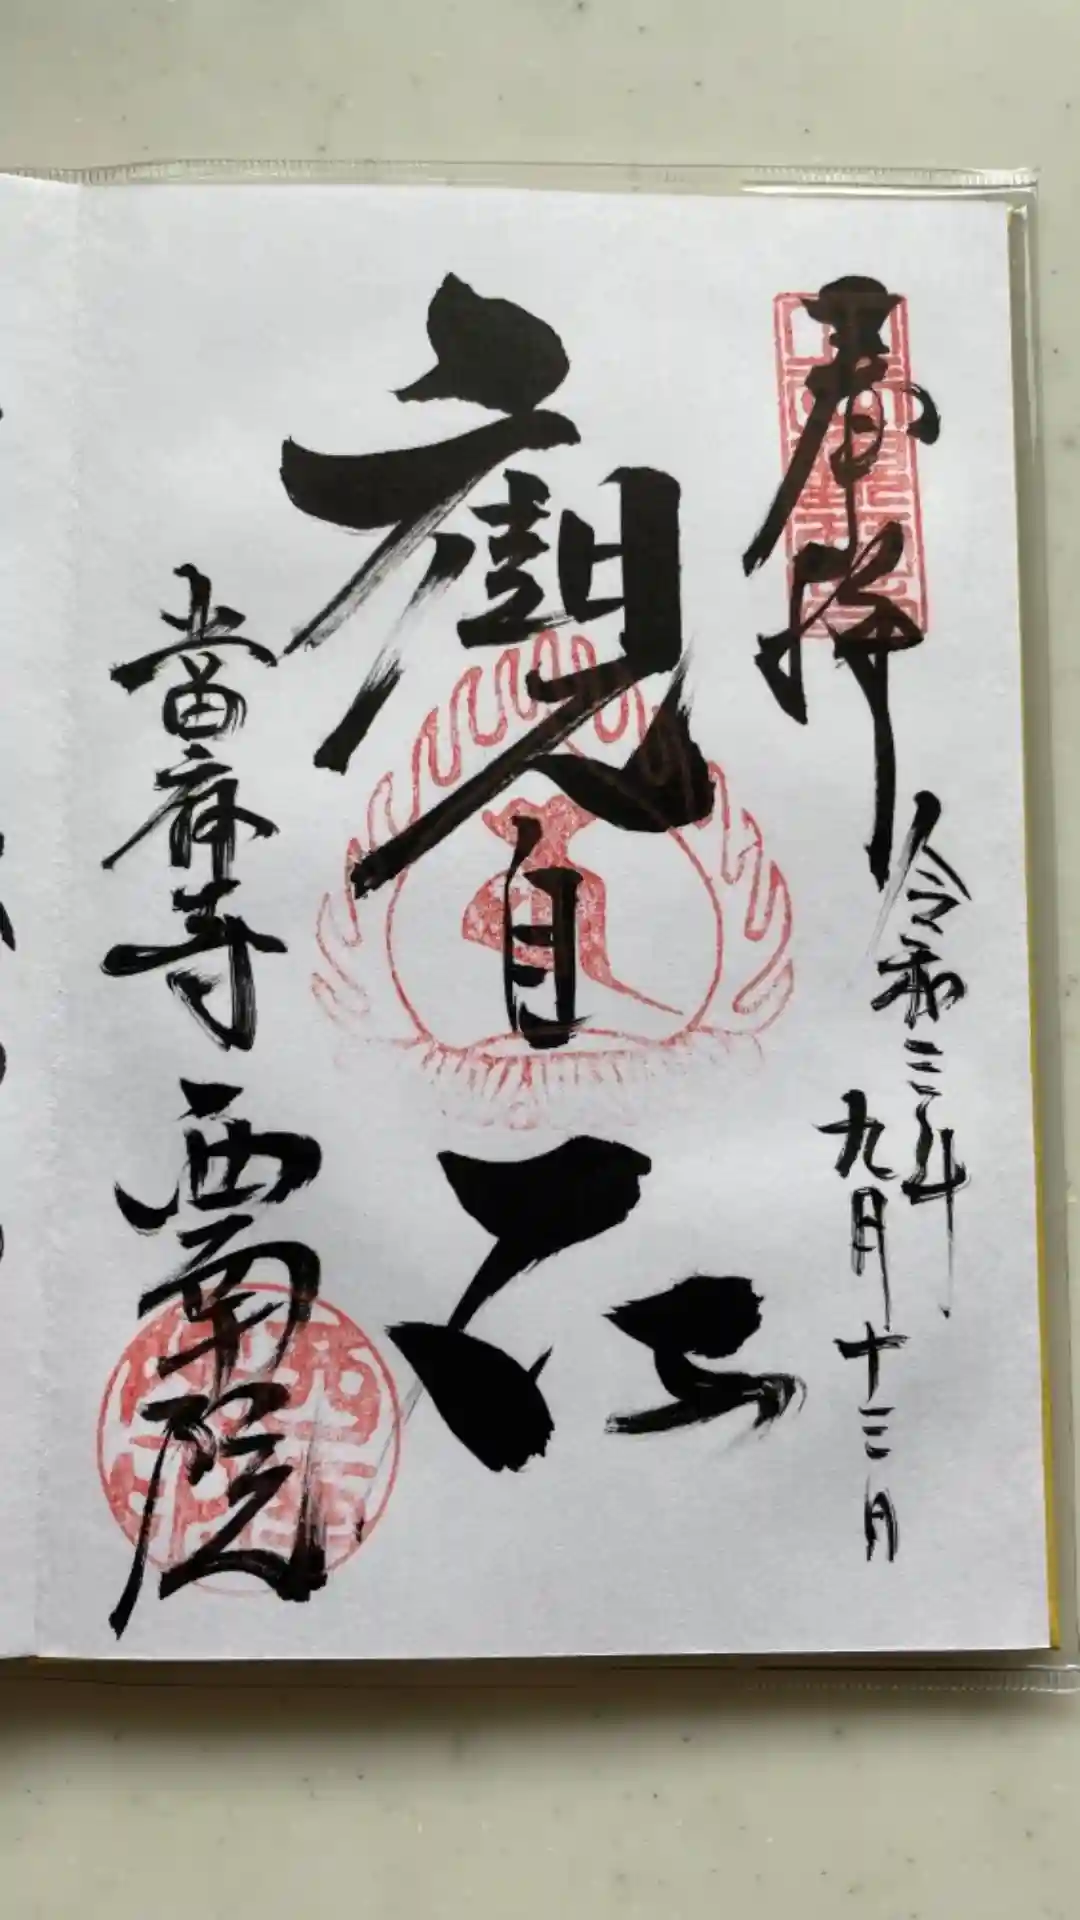 奉拝
令和三年
九月十三日
観自在
當麻寺
西南院